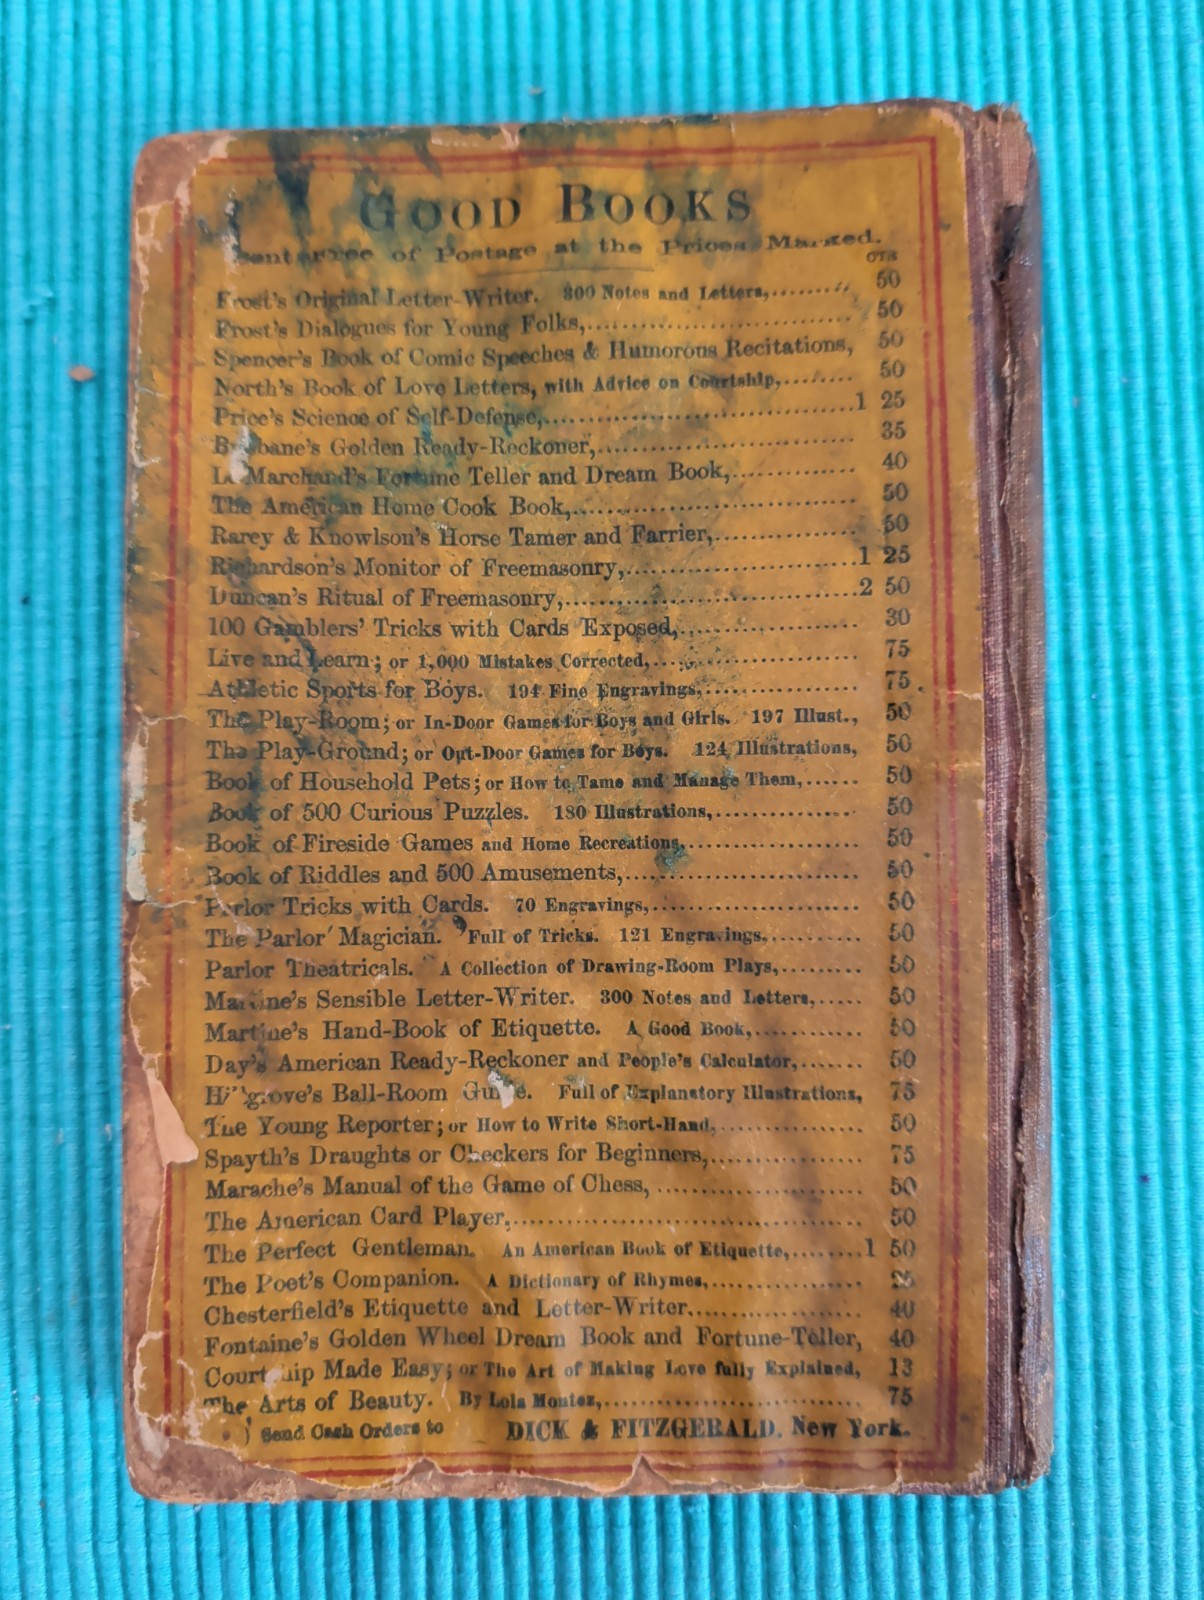 GOOD BOOKS
Sent Free of Postage at the Prices Marked.
CTS
Frost's Original Letter-Writer. 300 Notes and Letters,........ 50
Frost's Dialogues for Young Folks,........................... 50
Spencer's Book of Comic Speeches & Humorous Recitations, 50
North's Book of Love Letters, with Advice on Courtship,........ 50
Price's Science of Self-Defense,...............................1 25
Brisbane's Golden Ready-Reckoner,.......................... 35
Le Marchand's Fortune Teller and Dream Book,............. 40
The American Home Cook Book,............................. 50
Rarey & Knowlson's Horse Tamer and Farrier,............... 50
Richardson's Monitor of Freemasonry,.......................1 25
Duncan's Ritual of Freemasonry,.............................2 50
100 Gamblers' Tricks with Cards Exposed,.................. 30
Live and Learn; or 1,000 Mistakes Corrected,.................... 75
Athletic Sports for Boys. 194 Fine Engravings,................ 75
The Play-Room; or In-Door Games for Boys and Girls. 197 Illust., 50
The Play-Ground; or Out-Door Games for Boys. 124 Illustrations, 50
Book of Household Pets; or How to Tame and Manage Them,...... 50
Book of 500 Curious Puzzles. 180 Illustrations,............... 50
Book of Fireside Games and Home Recreations,................. 50
Book of Riddles and 500 Amusements,........................ 50
Parlor Tricks with Cards. 70 Engravings,...................... 50
The Parlor Magician. Full of Tricks. 121 Engravings,.......... 50
Parlor Theatricals. A Collection of Drawing-Room Plays,......... 50
Martine's Sensible Letter-Writer. 300 Notes and Letters,..... 50
Martine's Hand-Book of Etiquette. A Good Book,............ 50
Day's American Ready-Reckoner and People's Calculator,....... 50
Hillgrove's Ball-Room Guide. Full of Explanatory Illustrations, 75
The Young Reporter; or How to Write Short-Hand,................ 50
Spayth's Draughts or Checkers for Beginners,................ 75
Marache's Manual of the Game of Chess, ...................... 50
The American Card Player,.................................... 50
The Perfect Gentleman. An American Book of Etiquette,........1 50
The Poet's Companion. A Dictionary of Rhymes,................ 25
Chesterfield's Etiquette and Letter-Writer.................. 40
Fontaine's Golden Wheel Dream Book and Fortune-Teller, 40
Courtship Made Easy; or The Art of Making Love fully Explained, 13
The Arts of Beauty. By Lola Montez,........................... 75
Send Cash Orders to DICK & FITZGERALD, New York.